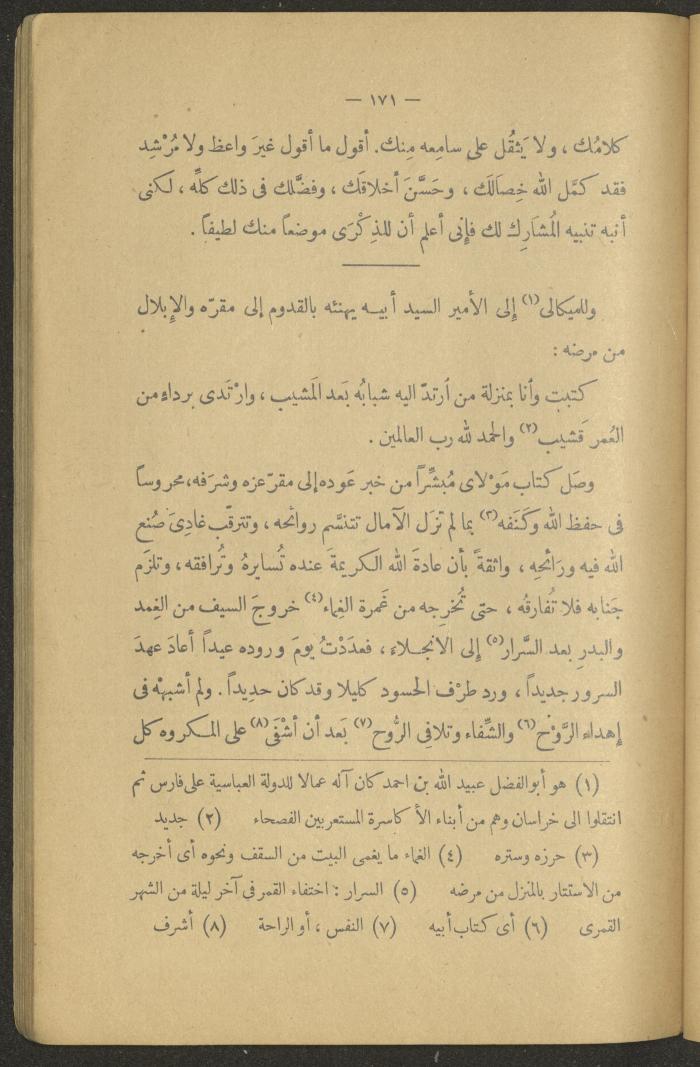 — ١٧١ —
كلامُك ، ولا يَثقُل على سامِعه مِنك. أقول ما أقول غيرَ واعظ ولا مُرْشِد
فقد كمَّل الله خِصالَك ، وحَسَّنَ أخلاقَك ، وفضَّلك فى ذلك كلِّه ، لكنى
أنبه تنبيه المُشارِك لك فإنى أعلم أن للذِكْرَى موضعاً منك لطيفاً .
وللميكالى (١) إلى الأمير السيد أبيـه يهنئه بالقدوم إلى مقرّه والإبلال
من مرضه :
كتبت وأنا بمنزلة من أرتدّ اليه شبابُه بَعد المَشيب ، وارْتَدى برداء من
العُمر قَشيب (٢) والحمد لله رب العالمين .
وصَل كتاب مَوْلاى مُبشِّراً من خبر عَوده إلى مقرّ عزه وشرَفه، محروساً
فى حفظ الله وكَنَفه (٣) بما لم تزَل الآمال تتنسَّم روائحه ، وتترقّب غادِىَ صُنع
الله فيه ورَائحِه ، واثقةً بأن عادةَ الله الكريمةَ عنده تُسايرهُ وتُرافقه ، وتلزَم
جَنابه فلا تُفارقُه ، حتى تُخرِجه من غَمرة الغِماء (٤) خروجَ السيف من الغِمد
والبدرِ بعد السَّرار (٥) إلى الانجـلاء ، فعدَدْتُ يومَ وروده عيداً أعادَ عهدَ
السرور جديداً ، ورد طرْف الحسود كليلا وقد كان حديداً . ولم أشبهْه فى
إهداء الرَّوْح (٦) والشِّفاء وتلافِى الرُّوح (٧) بَعد أن أشْفَى (٨) على المـكروه كل
(١) هو أبوالفضل عبيد الله بن احمد كان آله عمالا للدولة العباسية على فارس ثم
انتقلوا الى خراسان وهم من أبناء الأ كاسرة المستعربين الفصحاء (٢) جديد
(٣) حرزه وستره (٤) الغماء ما يغمى البيت من السقف ونحوه أى أخرجه
من الاستتار بالمنزل من مرضه (٥) السرار : اختفاء القمر فى آخر ليلة من الشهر
القمرى (٦) أى كتاب أبيه (٧) النفس ، أو الراحة (٨) أشرف